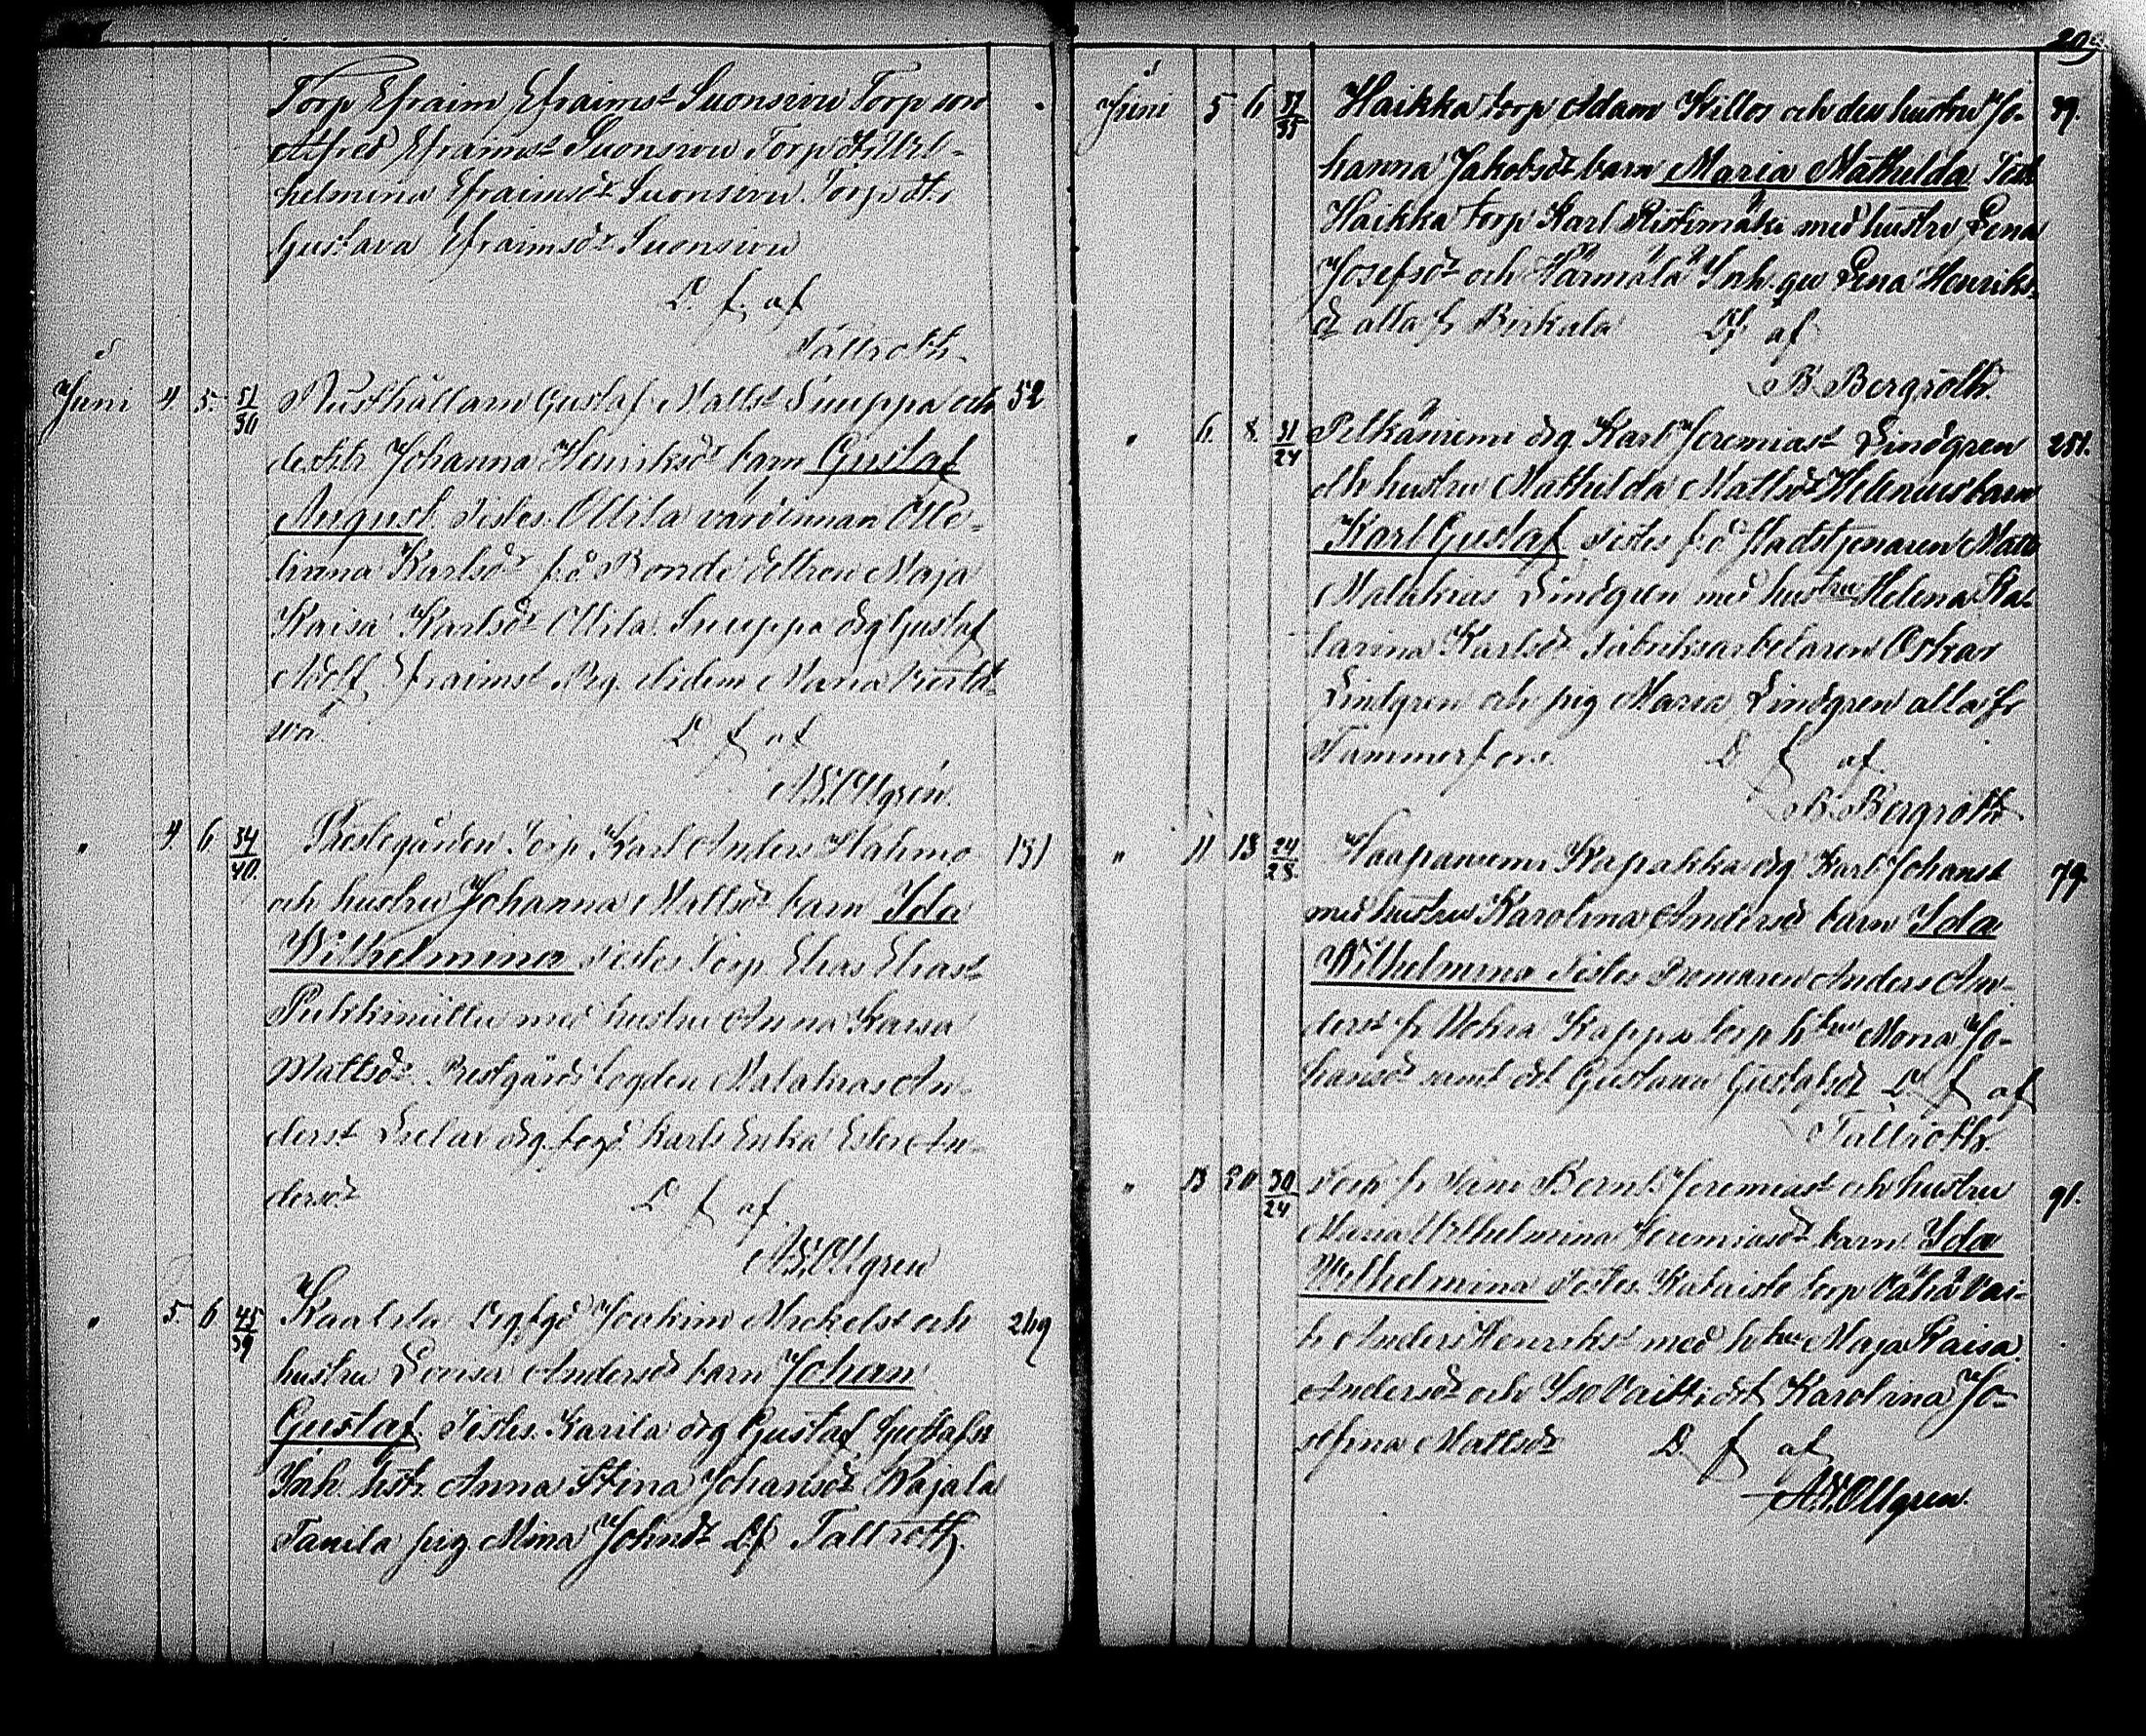 Torp Efraim Efraimst Suonsivu Torp son
Alfred Efraimst Suonsivu Torp dtr Wil-
helmina Efraimsdr Suonsivu Torp dtr
Gustava Efraimsdr Suonsivu
D. f. af
Tallroth.
Juni 4. 5. 31/30 Rusthållarn Gustaf Mattst Suuppa och 52
dess htr Johanna Henriksdr barn Gustaf
August Testes. Ollila värdinnan Otte-
liana Karlsdr f.d Bonde dottren Maja
Kaisa Karlsdr Ollila. Suuppa drg Gustaf
Adolf Efraimst Pig. ibidem Maria
D f af
A.W. Ollgrén.
" 4. 6 34/40. Prestegården Torp Karl Anders Hahmo 151
och hustru Johanna Mattsdr barn Ida
Wilhelmina Testes Torp Elias Eliast
med hustru Anna Kaisa
Mattsdr. Prestgårds fogden Malakias An-
derst drg Karl Erika Ester An-
dersdr D f af
A.W. Ollgren
" 5. 6 45/39 Kaalila Joakim Mickelst och 249
hustru Lovisa Andersdr barn Johan
Gustaf. Testes. Karila drg Gustaf Gustafst
Inh. hstr Anna Stina Johansdr Rajala
Tanila pig Mina Johnsdr Df Tallroth.
209
Juni 5 6 37/35 Haikka torp Adam Killos och dess hustru Jo- 39.
hanna Jakobsdr barn Maria Mathilda Test
Haikka torp Karl Ristimäki med hustru Lena
Josefsdr och Härmälä Inh. qv Lena Henriks-
dr alla fr Birkala Df af
B. Bergroth.
" 6. 8. 31/24 Pelkäniemi drg Karl Jeremiast Lindgren 251.
och hustru Mathilda Mattsdr Helenius barn
Karl Gustaf Testes f.d Stadstjenaren
Malakias Lindgren med hustru Helena Ka-
tarina Karlsdr fabriksarbetaren Oskar
Lindgren och pig Maria Lindgren alla fr
Tammerfors. D f af
B. Bergroth
" 11 13 24/28. Haapaniemi Kapakka drg Karl Johanst 79.
med hustru Karolina Andersdr barn Ida
Wilhelmina Testes Dremaren Anders An-
derst fr Kappa torp htru Maria Jo-
hansdr samt dtr Gustava Gustafsdr D f af
Tallroth.
" 13 20 30/24 Torp fr Bernt Jeremiast och hustru 91.
Maria Wilhelmina Jeremiasdr barn Ida
Wilhelmina Testes. Kataisto torp Vähä Vai-
Anders Henrikst med htru Maja Kaisa
Andersdr och Iso Vaitti dtr Karolina Jo-
sefina Mattsdr D f af
A.W. Ollgren.